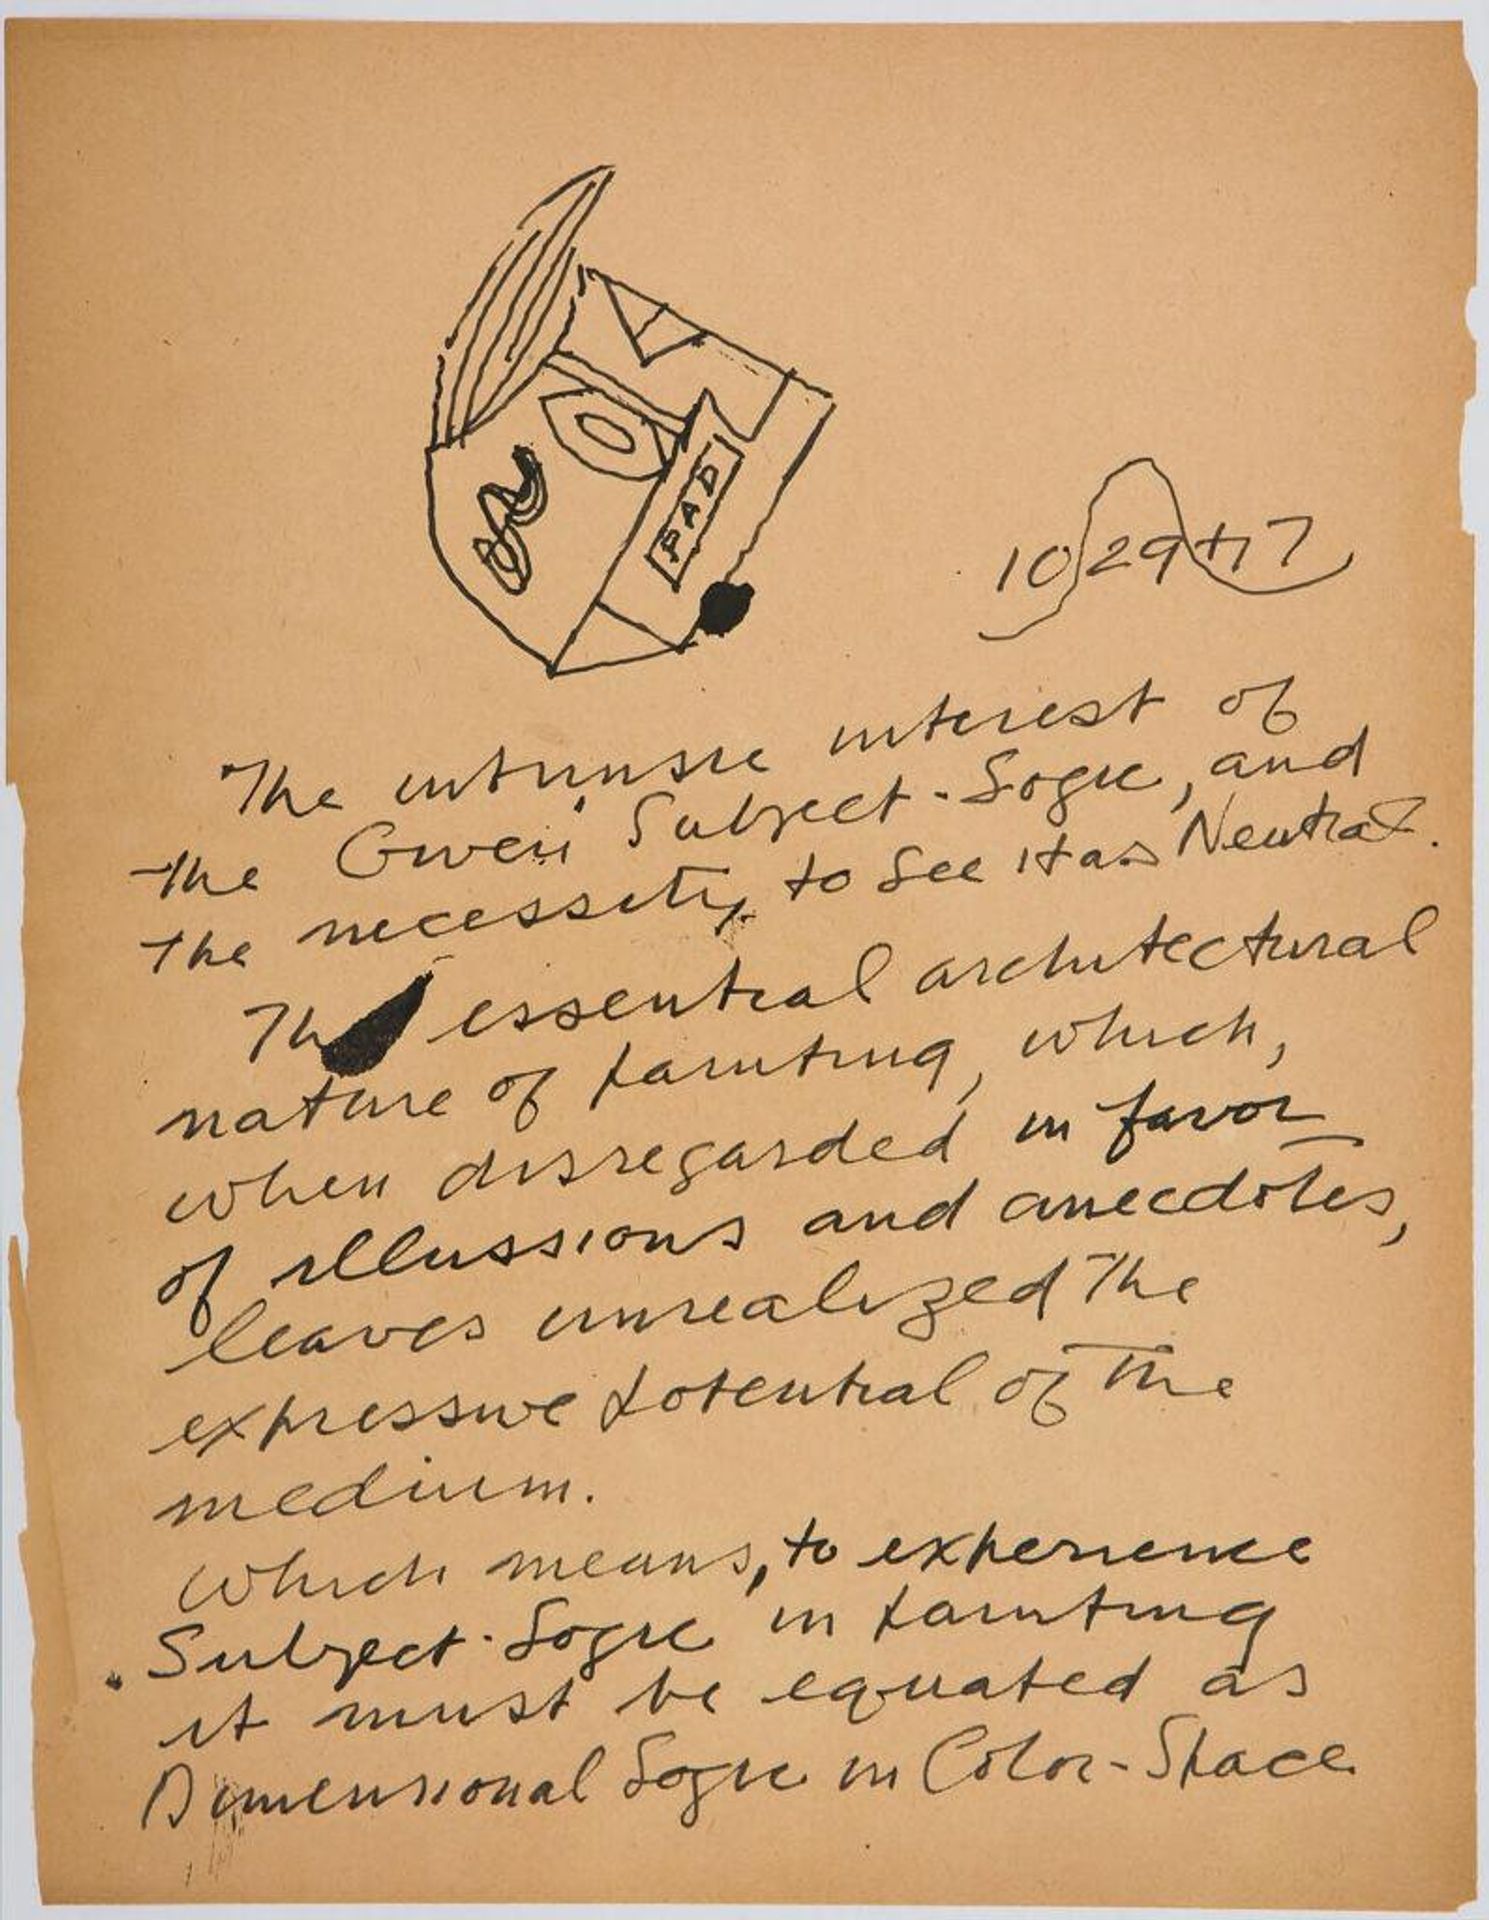 PAD
10/29+17
The intrinsic interest of
the Given Subject-Logic, and
the necessity, to see it as Neutral.
The essential architectural
nature of painting, which,
when disregarded in favor
of illussions and anecdotes,
leaves unrealized the
expressive potential of the
medium.
which means, to experience
Subject-Logic in painting
it must be equated as
Dimensional Logic in Color-Space